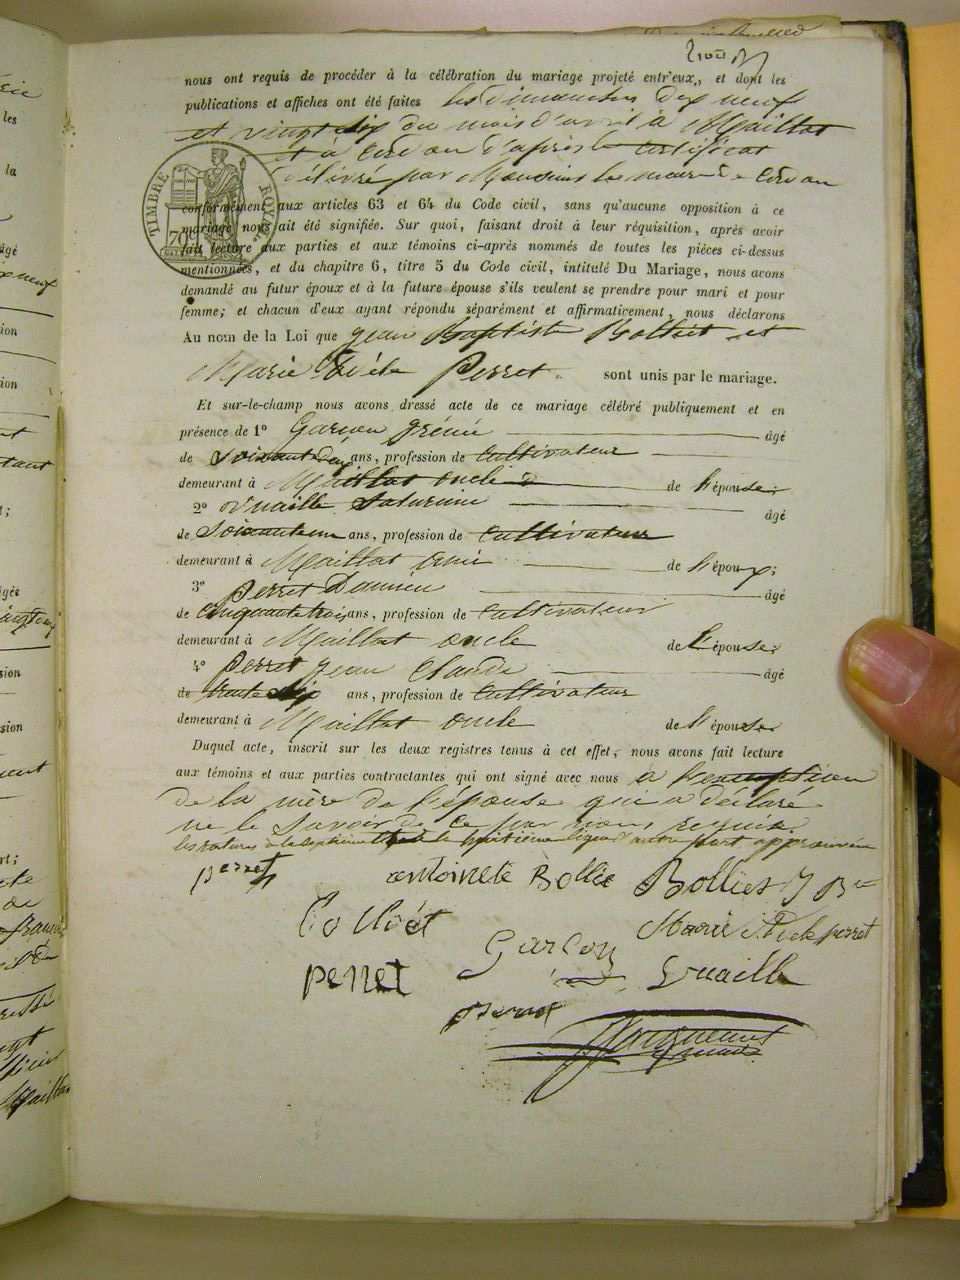 nous ont requis de procéder à la célébration du mariage projeté entr'eux, et dont les
publications et affiches ont été faites les dimanches dix neuf
et vingt six du mois d'avril à Maillat
et à Cerdon d'après le certificat
délivré par Monsieur le maire de Cerdon
TIMBRE ROYAL
70c
conformément aux articles 63 et 64 du Code civil, sans qu'aucune opposition à ce
mariage nous ait été signifiée. Sur quoi, faisant droit à leur réquisition, après avoir
fait lecture aux parties et aux témoins ci-après nommés de toutes les pièces ci-dessus
mentionnées, et du chapitre 6, titre 5 du Code civil, intitulé Du Mariage, nous avons
demandé au futur époux et à la future épouse s'ils veulent se prendre pour mari et pour
femme; et chacun d'eux ayant répondu séparément et affirmativement, nous déclarons
Au nom de la Loi que Jean Baptiste Bolliet et
Marie Perret sont unis par le mariage.
Et sur-le-champ nous avons dressé acte de ce mariage célébré publiquement et en
présence de 1° Garçon âgé
de soixante deux ans, profession de cultivateur
demeurant à Maillat oncle de l'épouse;
2° Vuaille Saturnin âgé
de soixante un ans, profession de cultivateur
demeurant à Maillat ami de l'époux;
3° Perret Damien âgé
de cinquante trois ans, profession de cultivateur
demeurant à Maillat oncle de l'épouse;
4° Perret Jean Claude âgé
de trente six ans, profession de cultivateur
demeurant à Maillat oncle de l'épouse
Duquel acte, inscrit sur les deux registres tenus à cet effet, nous avons fait lecture
aux témoins et aux parties contractantes qui ont signé avec nous à l'exception
de la mère de l'épouse qui a déclaré
ne le savoir de ce par nous requise
les ratures à la septième et la huitième ligne d'autre part approuvées
perret antoinete Bollie Bolliet J B te
Marie perret
Garçon
perret Vuaille
perret